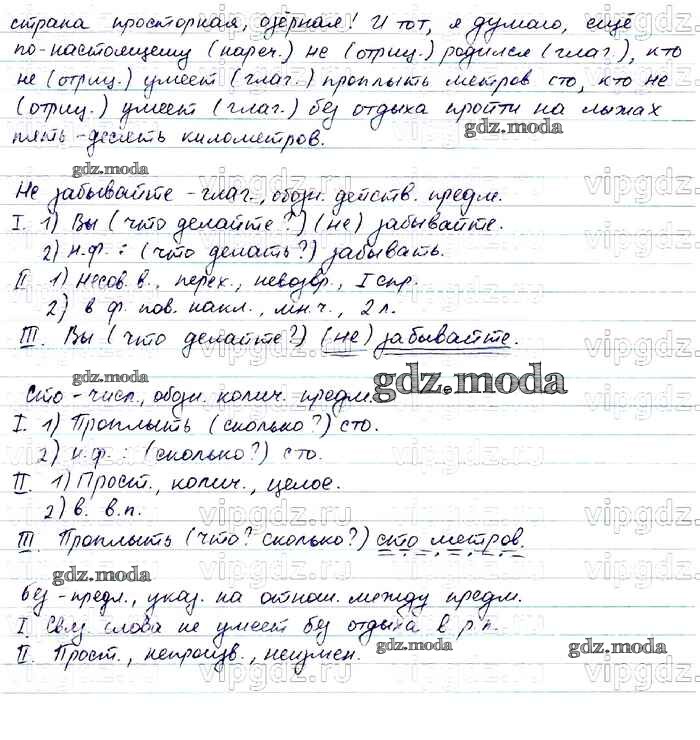 страна просторная, озёрная! И тот, я думаю, ещё
по-настоящему (нареч.) не (отриц.) родился (глаг.), кто
не (отриц.) умеет (глаг.) проплыть метров сто, кто не
(отриц.) умеет (глаг.) без отдыха пройти на лыжах
пять-десять километров.
gdz.moda
gdz.moda
Не забывайте - глаг., обозн. действ. предм.
I. 1) Вы (что делайте?) (не) забывайте.
2) н.ф.: (что делать?) забывать.
II 1) Несов. в., перех., невозвр., I спр.
2) в ф. пов. накл., мн.ч., 2 л.
III. Вы (что делайте?) (не) забывайте.
gdz.moda
gdz.moda
Сто - числ., обозн. колич. предм.
I. 1) Проплыть (сколько?) сто.
2) н.ф.: (сколько?) сто.
II. 1) Прост., колич., целое.
2) в. в.п.
III. Проплыть (что? сколько?) сто метров.
gdz.moda
Без - предл., указ. на отнош. между предм.
I. Связ. слова не умеет без отдыха в р.п.
II. Прост., непроизв., неизмен.
gdz.moda
gdz.moda
gdz.moda
vipgdz.ru